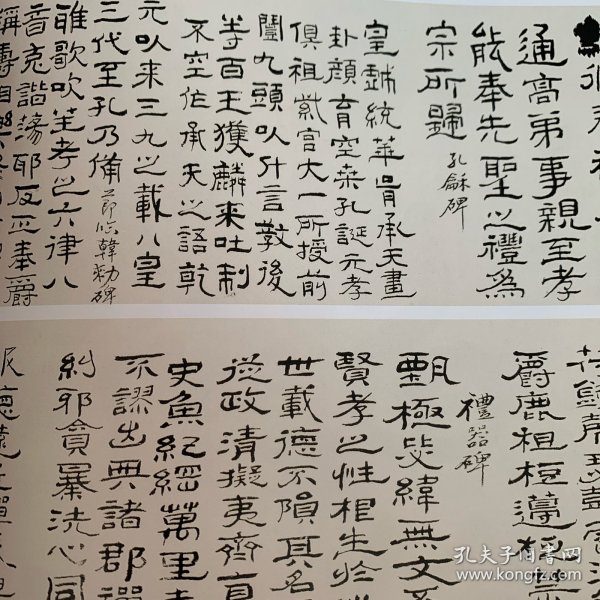 通高弟事親至孝
能奉先聖之禮為
宗所歸 孔龢碑
皇戲統華胥承天畫
卦顏育空桒孔誕元孝
俱祖紫宮大一所授前
闓九頭以什言教後
制百王獲麟來吐制
不空作承天之語乾
元以来三九之載八皇
三代至孔乃備 節臨韓勑碑
雅歌吹笙考之六律八
音克諧蕩邪反正奉爵
稱壽相樂
爵鹿柤梪籩
禮器碑
甄極毖緯無文
賢孝之性根生於
世載德不隕其名
從政清擬夷齊直
史魚紀綱萬里
不謬出典諸郡
糾邪貪暴洗心同
孔夫子旧书网
www.kongfz.com